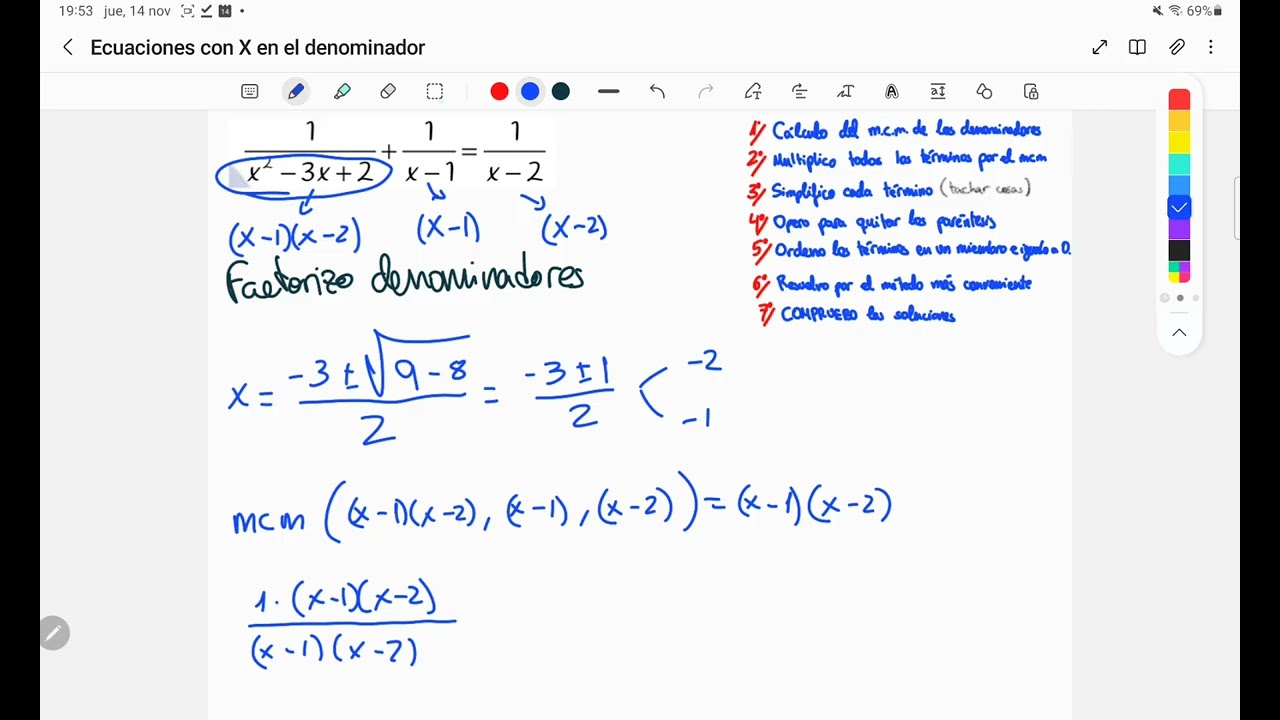 19:53 jue, 14 nov 14
69%
Ecuaciones con X en el denominador
1/(x² − 3x + 2) + 1/(x − 1) = 1/(x − 2)
(x-1)(x-2) (x-1) (x-2)
Factorizo denominadores
1º/ Cálculo del m.c.m. de los denominadores
2º/ Multiplico todos los términos por el mcm
3º/ Simplifico cada término (tachar cosas)
4º/ Opero para quitar los paréntesis
5º/ Ordeno los términos en un miembro e igualo a 0.
6º/ Resuelvo por el método más conveniente
7º/ COMPRUEBO las soluciones
x = (-3 ± √(9 - 8))/2 = (-3 ± 1)/2 < -2
-1
mcm ((x-1)(x-2), (x-1), (x-2)) = (x-1)(x-2)
1·(x-1)(x-2)
(x-1)(x-2)